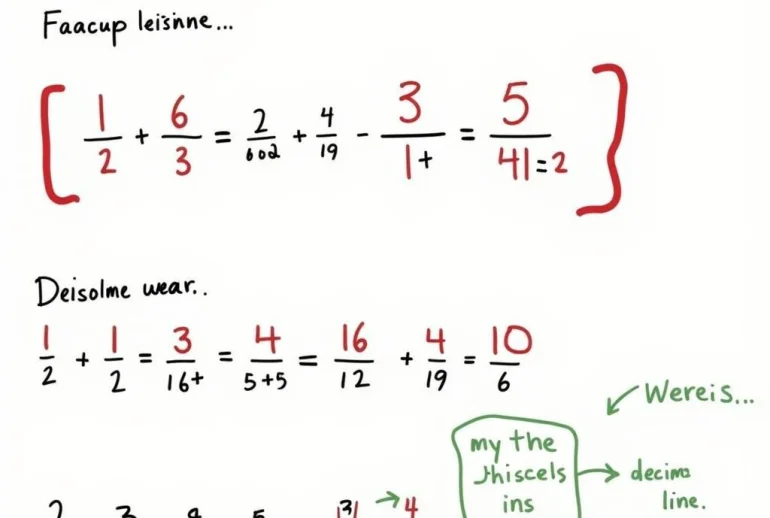 Faacup leisinne...
[ 1/2 + 6/3 = 2/602 + 4/19 - 3/1+ = 5/41=2 }
Deisolme wear..
1/2 + 1/2 = 3/16+ = 4/5+5 = 16/12 + 4/19 = 10/6
Wereis...
my the
thiscels
ins
decima
line.
→ 4